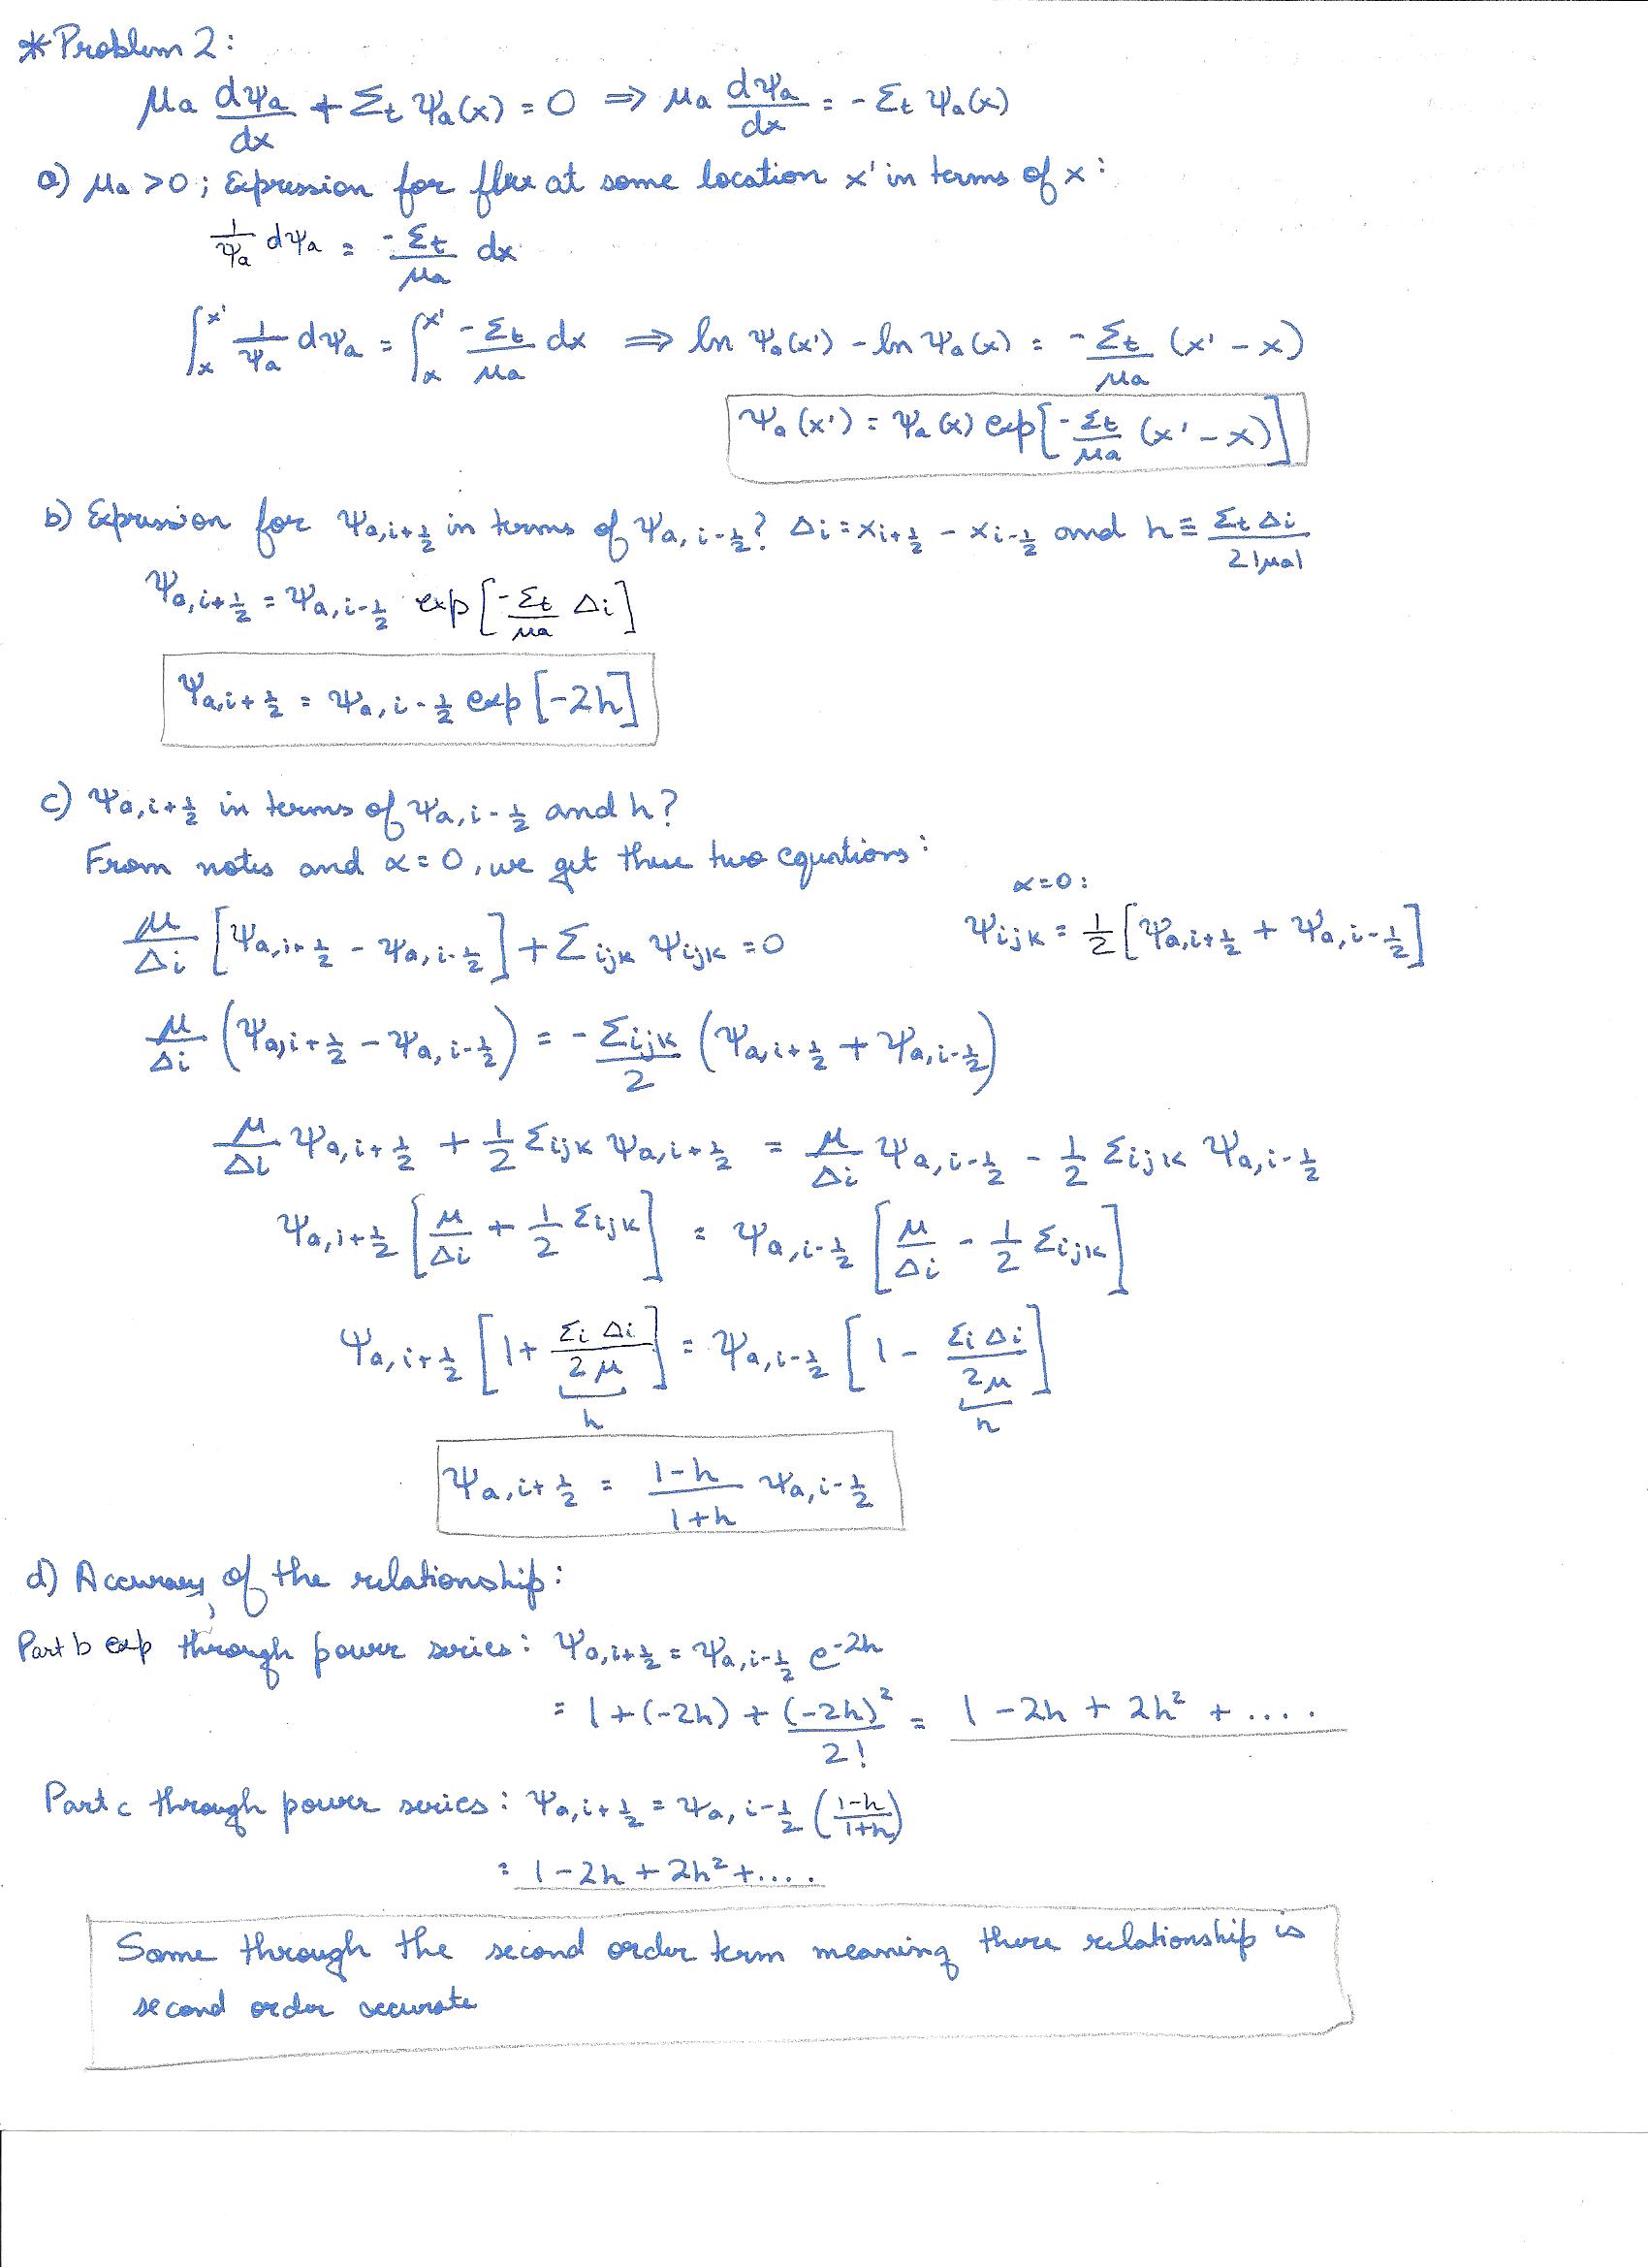 *Problem 2:
μa dψa/dx + Σt ψa(x) = 0 ⇒ μa dψa/dx = - Σt ψa(x)
a) μa > 0; Expression for flux at some location x' in terms of x:
1/ψa dψa = -Σt/μa dx
∫_x^x' 1/ψa dψa = ∫_x^x' -Σt/μa dx ⇒ ln ψa(x') - ln ψa(x) = -Σt/μa (x' - x)
ψa(x') = ψa(x) exp[-Σt/μa (x' - x)]
b) Expression for ψa,i+1/2 in terms of ψa,i-1/2? Δi = xi+1/2 - xi-1/2 and h ≡ ΣtΔi/2|μa|
ψa,i+1/2 = ψa,i-1/2 exp[-Σt/μa Δi]
ψa,i+1/2 = ψa,i-1/2 exp[-2h]
c) ψa,i+1/2 in terms of ψa,i-1/2 and h?
From notes and α=0, we get these two equations:
α=0:
μ/Δi [ψa,i+1/2 - ψa,i-1/2] + Σijk ψijk = 0 ψijk = 1/2 [ψa,i+1/2 + ψa,i-1/2]
μ/Δi (ψa,i+1/2 - ψa,i-1/2) = - Σijk/2 (ψa,i+1/2 + ψa,i-1/2)
μ/Δi ψa,i+1/2 + 1/2 Σijk ψa,i+1/2 = μ/Δi ψa,i-1/2 - 1/2 Σijk ψa,i-1/2
ψa,i+1/2 [μ/Δi + 1/2 Σijk] = ψa,i-1/2 [μ/Δi - 1/2 Σijk]
ψa,i+1/2 [1 + Σi Δi/2μ] = ψa,i-1/2 [1 - Σi Δi/2μ]
h h
ψa,i+1/2 = 1-h/1+h ψa,i-1/2
d) Accuracy of the relationship:
Part b exp through power series: ψa,i+1/2 = ψa,i-1/2 e^-2h
= 1+(-2h) + (-2h)²/2! = 1 - 2h + 2h² + ....
Part c through power series: ψa,i+1/2 = ψa,i-1/2 (1-h/1+h)
= 1 - 2h + 2h² + ....
Same through the second order term meaning there relationship is
second order accurate